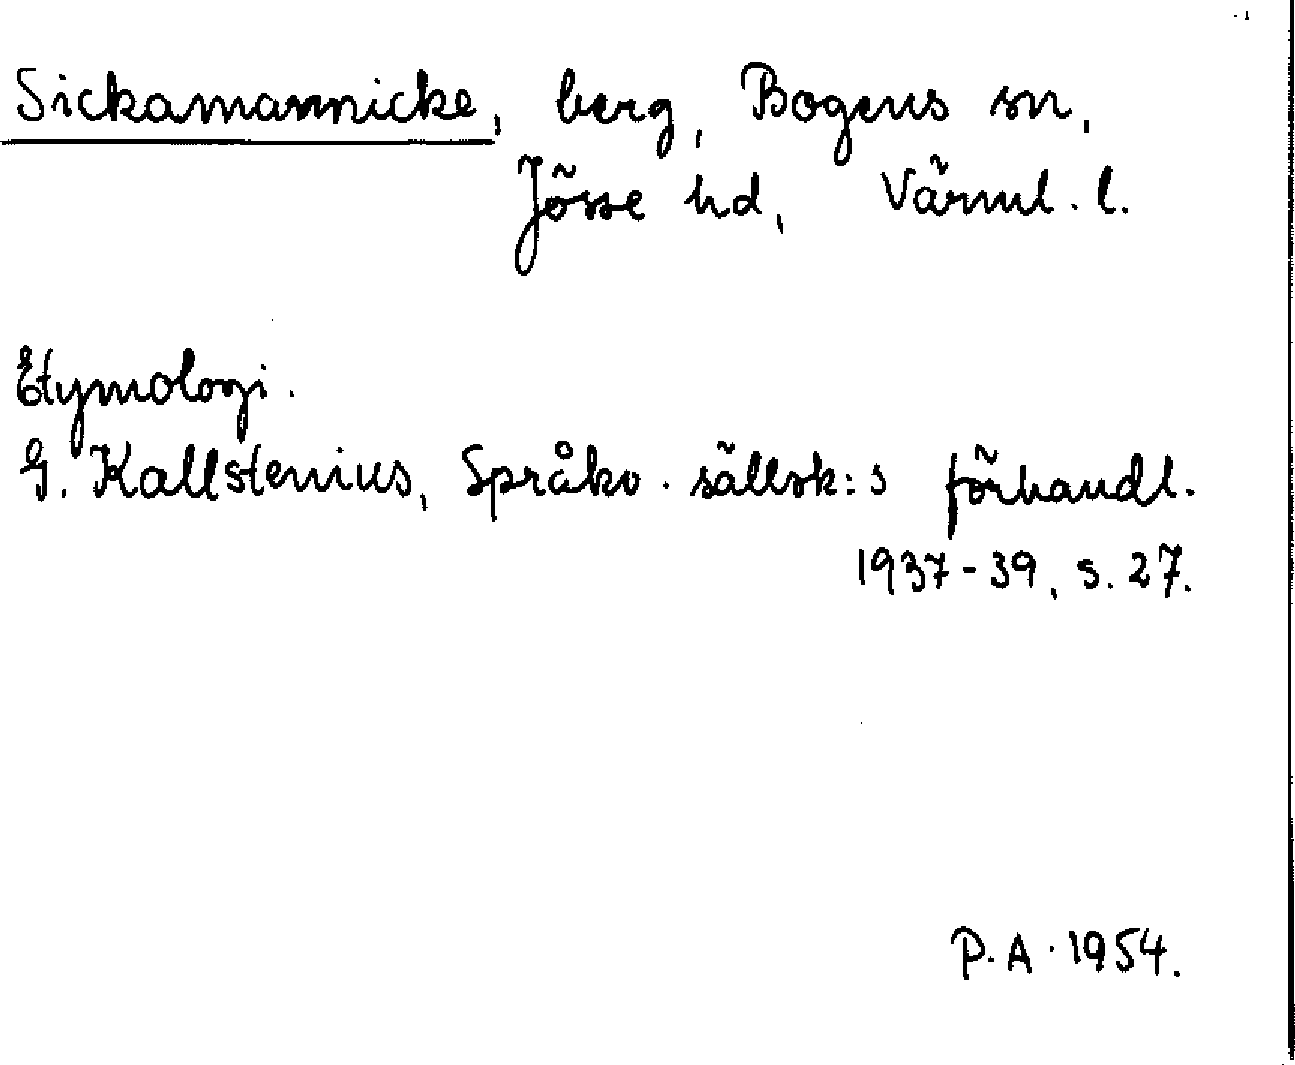 Sickamannicke, berg, Bogens sn,
Jösse hd, Värml. l.
Etymologi.
G. Kallstenius, Språkv. sällsk:s förhandl.
1937-39, s. 27.
P.A. 1954.